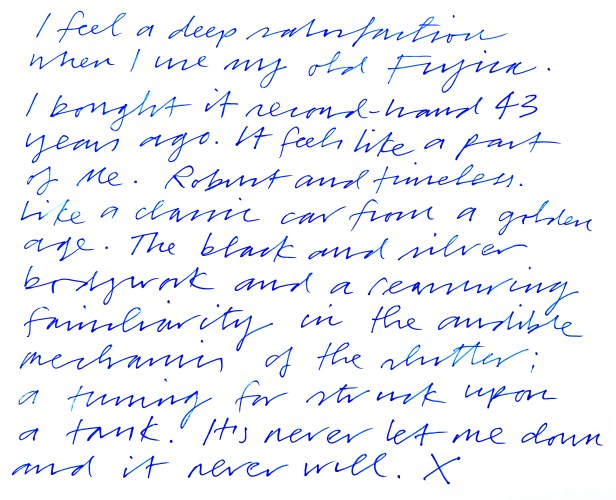 I feel a deep satisfaction
when I use my old Fujica.
I bought it second-hand 43
years ago. It feels like a part
of me. Robust and timeless.
Like a classic car from a golden
age. The black and silver
bodywork and a reassuring
familiarity in the audible
mechanics of the shutter;
a tuning for struck upon
a tank. It's never let me down
and it never will. X